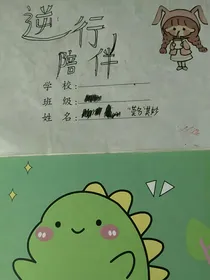 逆行
陪伴
学校:
班级:
姓名: